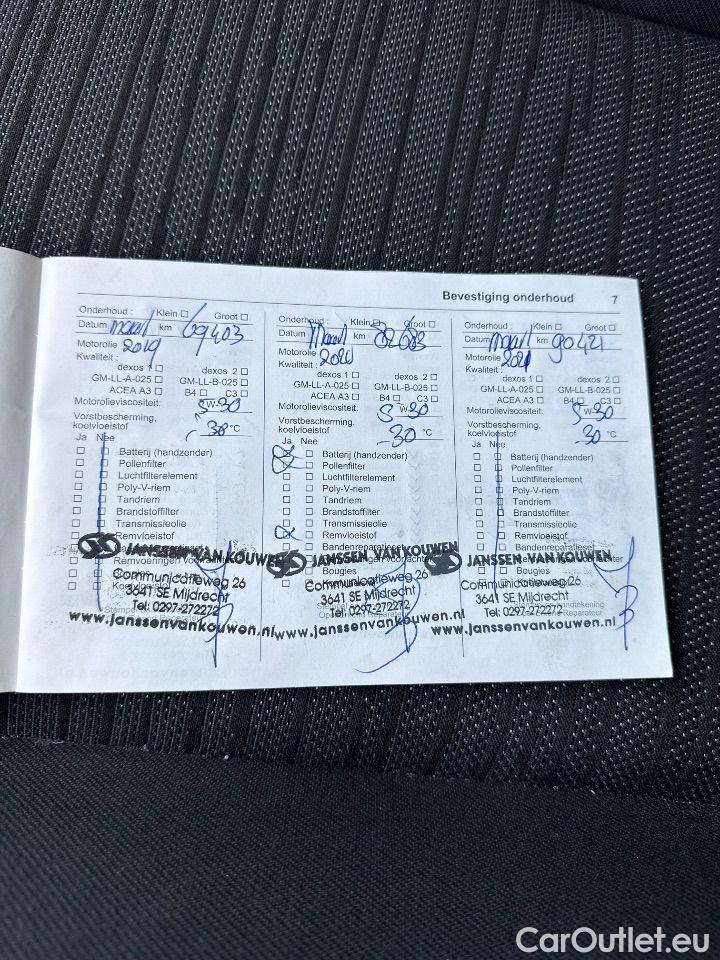 Bevestiging onderhoud 7
Onderhoud : Klein Groot
Datum maart km 69403
Motorolie 2019
Kwaliteit :
dexos 1 dexos 2
GM-LL-A-025 GM-LL-B-025
ACEA A3 B4 C3
Motorolieviscositeit: 5W-30
Vorstbescherming,
koelvloeistof -30 °C
Ja Nee
Batterij (handzender)
Pollenfilter
Luchtfilterelement
Poly-V-riem
Tandriem
Brandstoffilter
Transmissieolie
Remvloeistof
JANSSEN VAN KOUWEN
Communicatieweg 26
3641 SE Mijdrecht
Tel: 0297-272272
www.janssenvankouwen.nl
Onderhoud : Klein Groot
Datum maart km 82683
Motorolie
Kwaliteit :
dexos 1 dexos 2
GM-LL-A-025 GM-LL-B-025
ACEA A3 B4 C3
Motorolieviscositeit: 5W-30
Vorstbescherming,
koelvloeistof -30 °C
Ja Nee
Batterij (handzender)
Pollenfilter
Luchtfilterelement
Poly-V-riem
Tandriem
Brandstoffilter
Transmissieolie
Remvloeistof
Bandenreparatieset
JANSSEN VAN KOUWEN
Bougies
Communicatieweg 26
3641 SE Mijdrecht
Tel: 0297-272272
www.janssenvankouwen.nl
Onderhoud : Klein Groot
Datum maart km 90421
Motorolie 2021
Kwaliteit :
dexos 1 dexos 2
GM-LL-A-025 GM-LL-B-025
ACEA A3 B4 C3
Motorolieviscositeit: 5W-30
Vorstbescherming,
koelvloeistof -30 °C
Ja Nee
Batterij (handzender)
Pollenfilter
Luchtfilterelement
Poly-V-riem
Tandriem
Brandstoffilter
Transmissieolie
Remvloeistof
Bandenreparatieset
JANSSEN VAN KOUWEN
Bougies
Communicatieweg 26
3641 SE Mijdrecht
Tel: 0297-272272
www.janssenvankouwen.nl
CarOutlet.eu